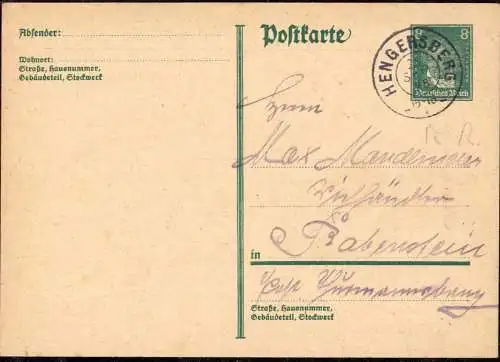 Absender:
Wohnort:
Straße, Hausnummer,
Gebäudeteil, Stockwerk
Postkarte
8
HENGERSBERG
Deutsches Reich
Herrn
Max
Viehändler
Rabenstein
in
Post
Straße, Hausnummer,
Gebäudeteil, Stockwerk